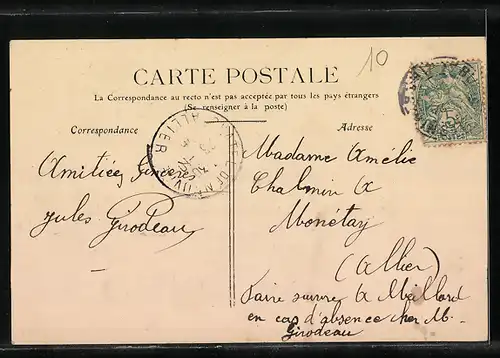 10
CARTE POSTALE
La Correspondance au recto n'est pas acceptée par tous les pays étrangers
(Se renseigner à la poste)
Correspondance
Adresse
ALLIER
Amitiées sincères
Jules Girodeau
Madame Amélie
Chalmin à
Monétay
(Allier)
Faire suivre à Meillard
en cas d'absence chez M.
Girodeau